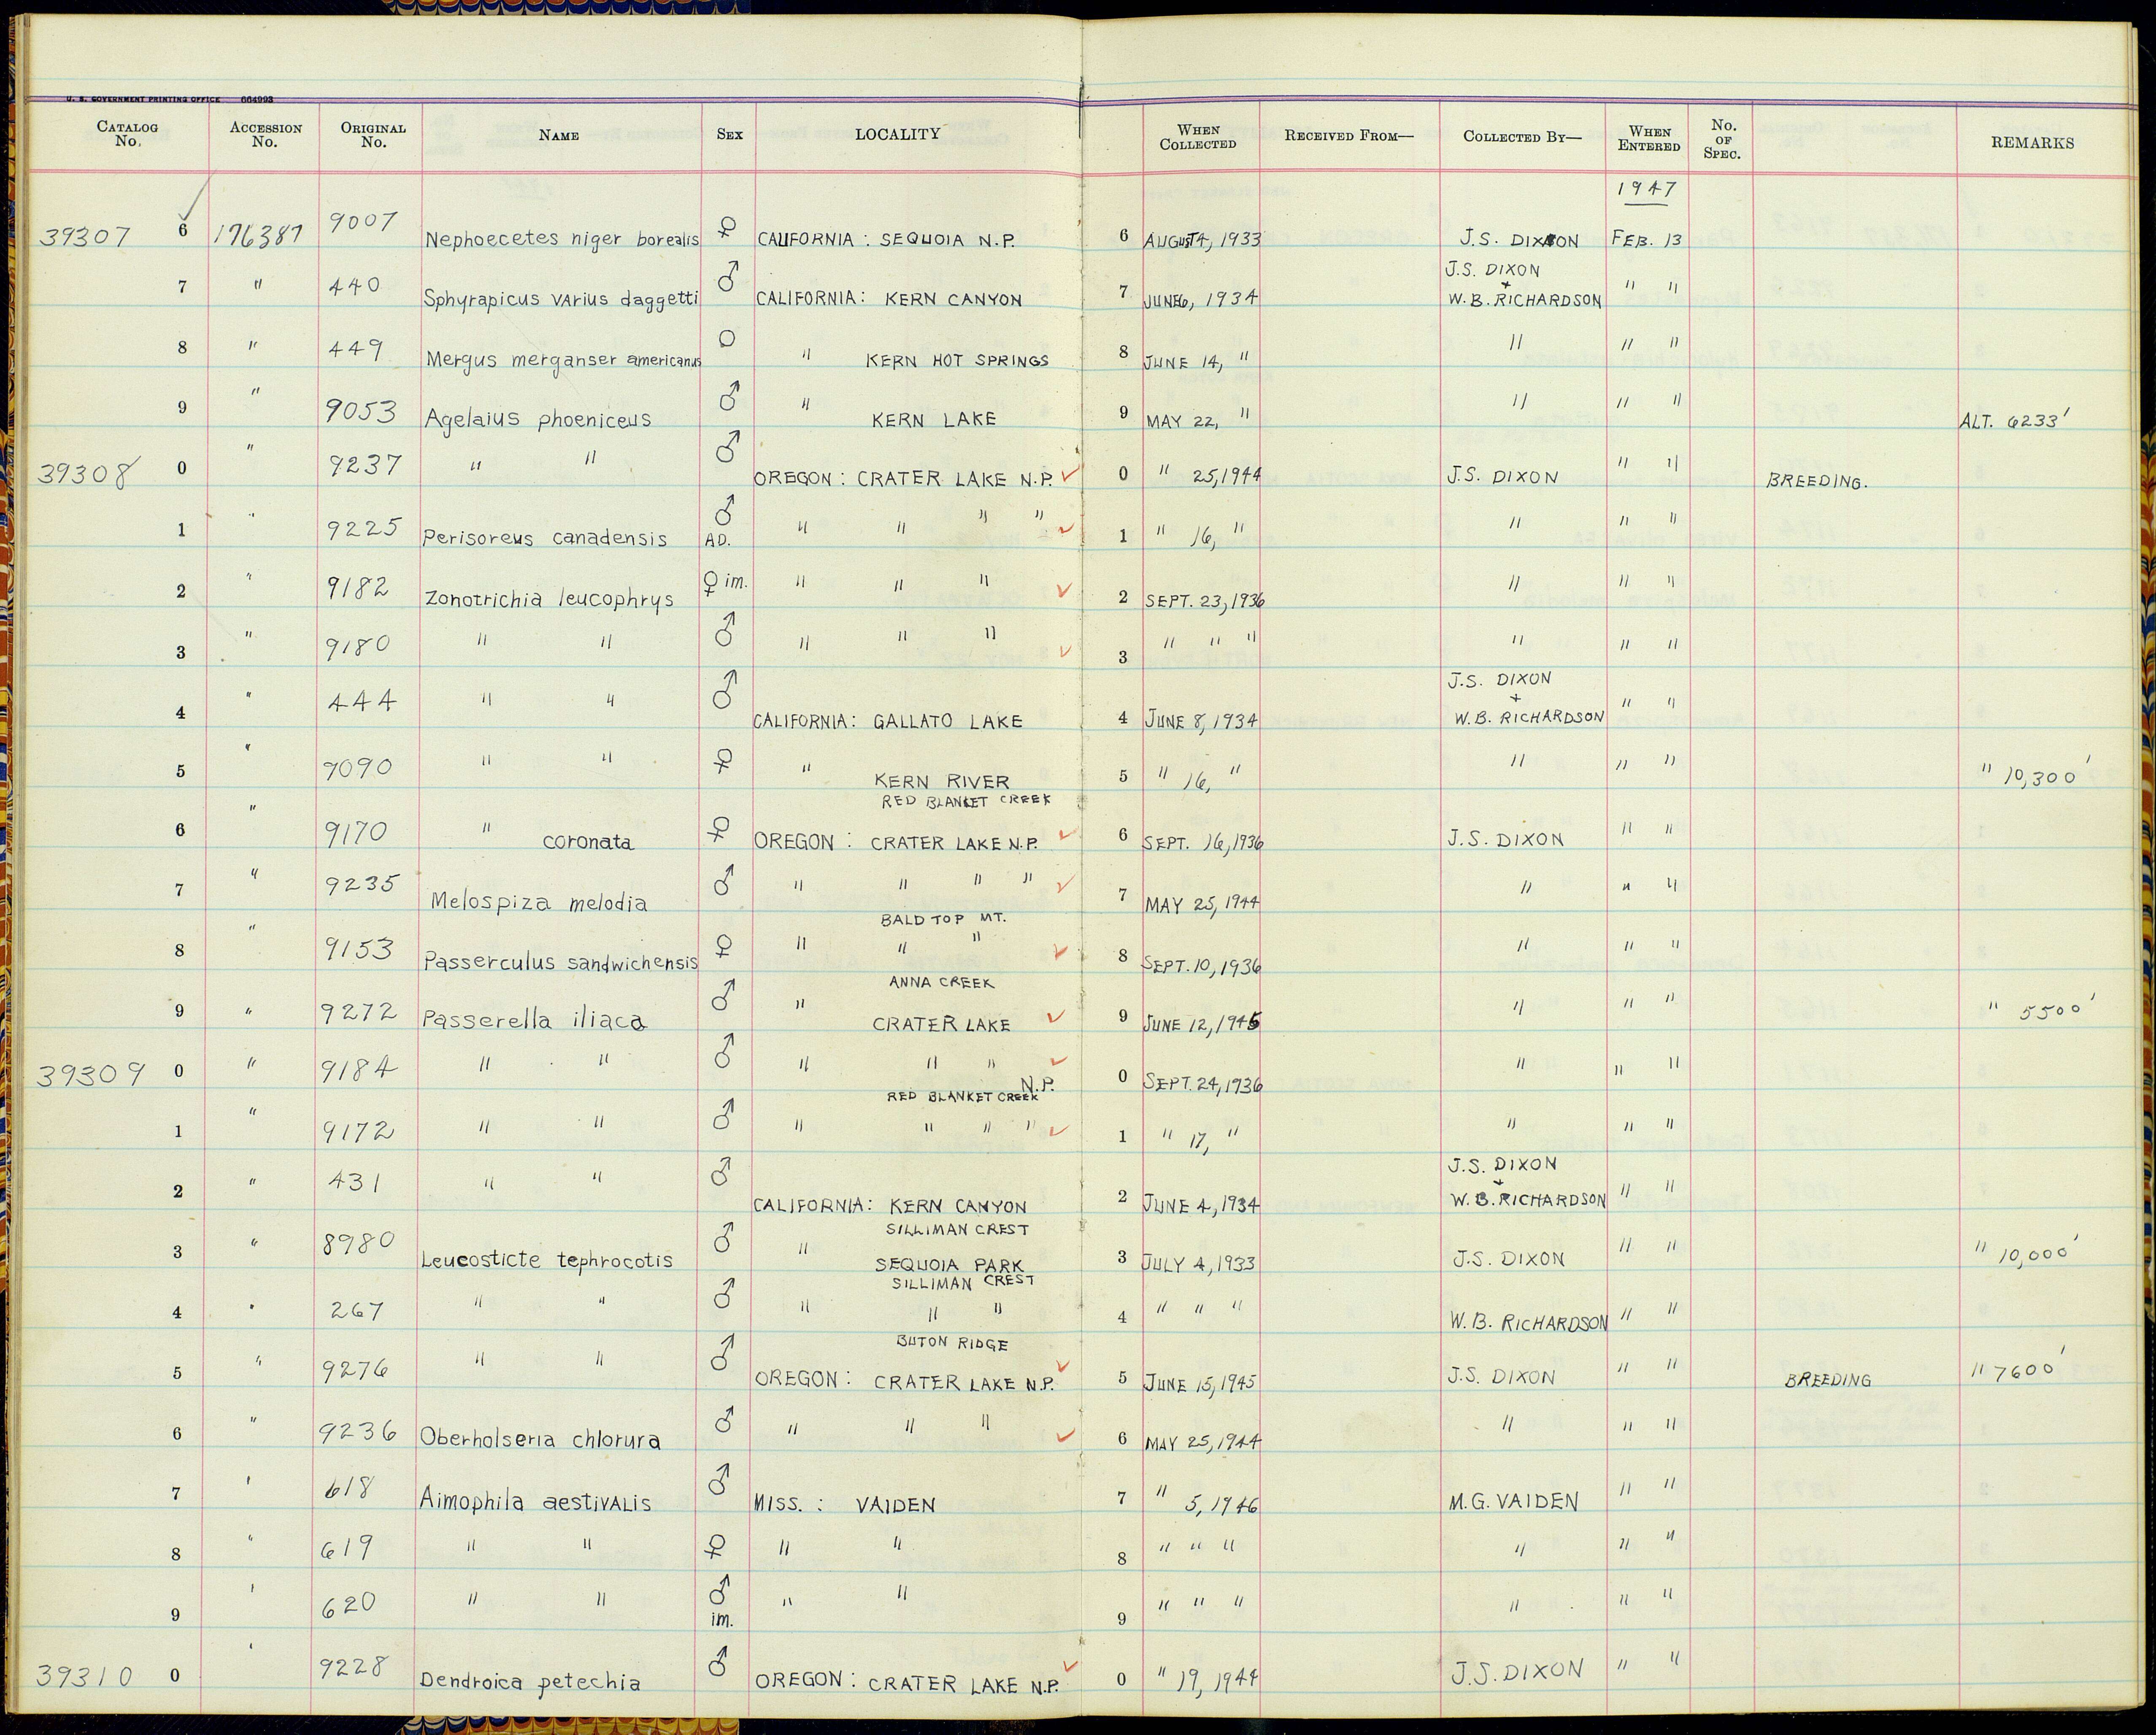 U. S. GOVERNMENT PRINTING OFFICE 664993
CATALOG No. ACCESSION No. ORIGINAL No. NAME SEX LOCALITY WHEN COLLECTED RECEIVED FROM— COLLECTED BY— WHEN ENTERED No. OF SPEC. REMARKS
1947
39307 6 176387 9007 Nephoecetes niger borealis ♀ CALIFORNIA : SEQUOIA N.P. 6 AUGUST 4, 1933 J.S. DIXON FEB. 13
7 " 440 Sphyrapicus varius daggetti ♂ CALIFORNIA : KERN CANYON 7 JUNE 6, 1934 J.S. DIXON + W.B. RICHARDSON " "
8 " 449 Mergus merganser americanus ♀ " KERN HOT SPRINGS 8 JUNE 14, " " " "
9 " 9053 Agelaius phoeniceus ♂ " KERN LAKE 9 MAY 22, " " " " ALT. 6233'
39308 0 " 9237 " " ♂ OREGON : CRATER LAKE N.P. ✓ 0 " 25, 1944 J.S. DIXON " " BREEDING.
1 " 9225 Perisoreus canadensis ♂ AD. " " " " ✓ 1 " 16, " " " "
2 " 9182 Zonotrichia leucophrys ♀ im. " " " ✓ 2 SEPT. 23, 1936 " " "
3 " 9180 " " ♂ " " " ✓ 3 " " " " " "
4 " 444 " " ♂ CALIFORNIA : GALLATO LAKE 4 JUNE 8, 1934 J.S. DIXON + W.B. RICHARDSON " "
5 " 9090 " " ♀ " KERN RIVER 5 " 16, " " " " " 10,300'
6 " 9170 " coronata ♀ OREGON : RED BLANKET CREEK CRATER LAKE N.P. ✓ 6 SEPT. 16, 1936 J.S. DIXON " "
7 " 9235 Melospiza melodia ♂ " " " " ✓ 7 MAY 25, 1944 " " "
8 " 9153 Passerculus sandwichensis ♀ " BALD TOP MT. " " ✓ 8 SEPT. 10, 1936 " " "
9 " 9272 Passerella iliaca ♂ " ANNA CREEK CRATER LAKE ✓ 9 JUNE 12, 1945 " " " " 5500'
39309 0 " 9184 " " ♂ " " " N.P. ✓ 0 SEPT. 24, 1936 " " "
1 " 9172 " " ♂ " RED BLANKET CREEK " " " ✓ 1 " 17, " " " "
2 " 431 " " ♂ CALIFORNIA : KERN CANYON 2 JUNE 4, 1934 J.S. DIXON + W.B. RICHARDSON " "
3 " 8980 Leucosticte tephrocotis ♂ " SILLIMAN CREST SEQUOIA PARK 3 JULY 4, 1933 J.S. DIXON " " " 10,000'
4 " 267 " " ♂ " SILLIMAN CREST " " 4 " " " W.B. RICHARDSON " "
5 " 9276 " " ♂ OREGON : BUTON RIDGE CRATER LAKE N.P. ✓ 5 JUNE 15, 1945 J.S. DIXON " " BREEDING " 7600'
6 " 9236 Oberholseria chlorura ♂ " " " ✓ 6 MAY 25, 1944 " " "
7 " 618 Aimophila aestivalis ♂ MISS. : VAIDEN 7 " 5, 1946 M.G. VAIDEN " "
8 " 619 " " ♀ " " 8 " " " " " "
9 " 620 " " ♂ im. " " 9 " " " " " "
39310 0 " 9228 Dendroica petechia ♂ OREGON : CRATER LAKE N.P. ✓ 0 " 19, 1944 J.S. DIXON " "